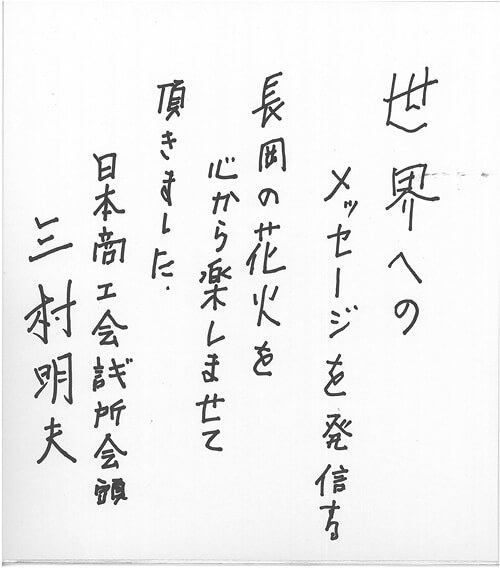 世界への
メッセージを発信する
長岡の花火を
心から楽しませて
頂きました.
日本商工会議所会頭
三村明夫